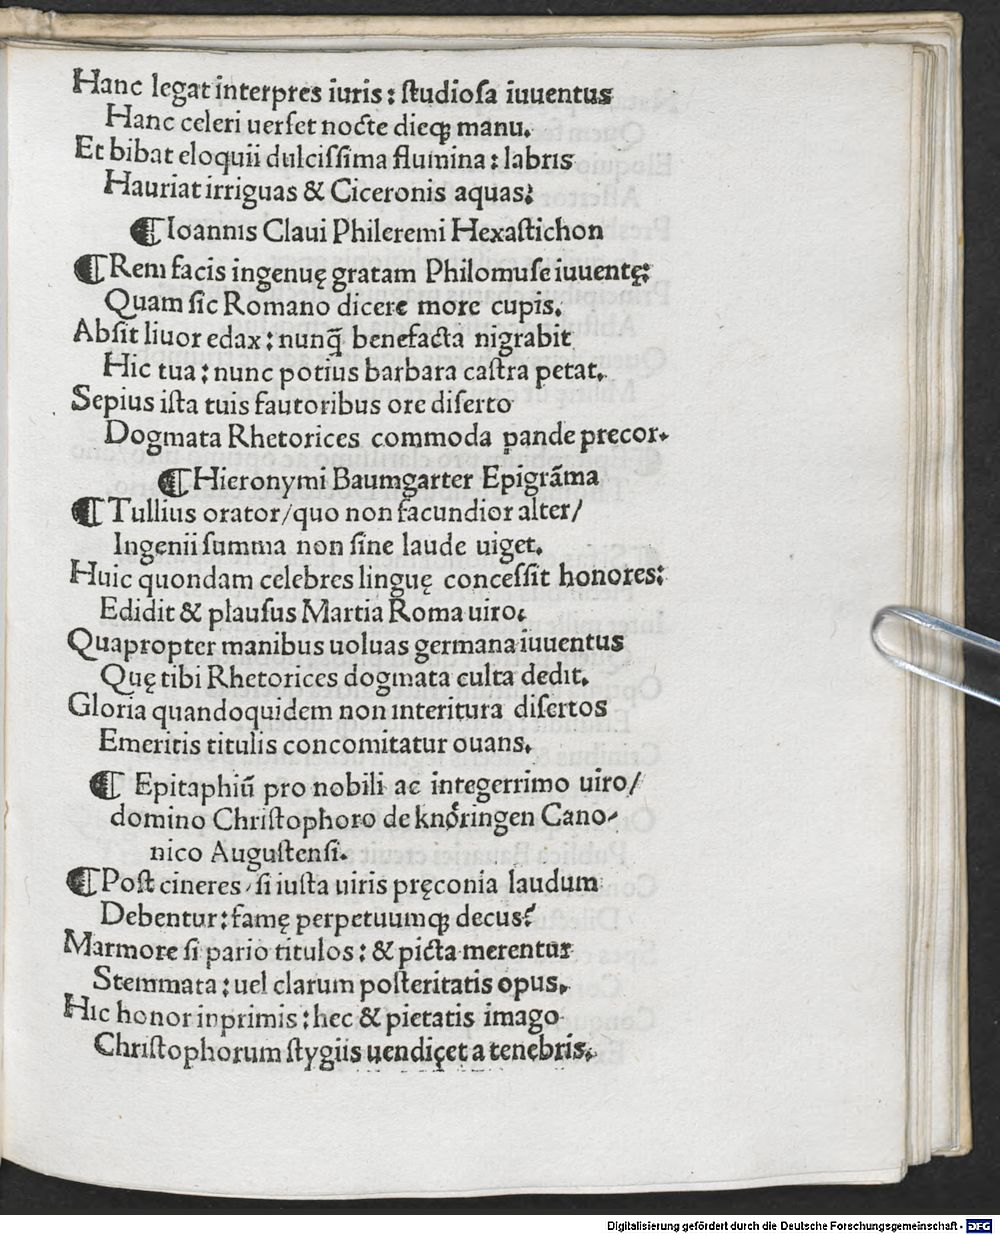 Hanc legat interpres iuris: ſtudioſa iuuentus
Hanc celeri uerſet nocte dieqꝫ manu.
Et bibat eloquii dulciſſima flumina: labris
Hauriat irriguas & Ciceronis aquas.
¶ Ioannis Claui Phileremi Hexaſtichon
¶ Rem facis ingenuę gratam Philomuſe iuuentę:
Quam ſic Romano dicere more cupis.
Abſit liuor edax: nunq̃ benefacta nigrabit
Hic tua: nunc potius barbara caſtra petat.
Sepius iſta tuis fautoribus ore diſerto
Dogmata Rhetorices commoda ꝑande precor.
¶ Hieronymi Baumgarter Epigrãma
¶ Tullius orator/quo non facundior alter/
Ingenii ſumma non ſine laude uiget.
Huic quondam celebres linguę conceſſit honores:
Edidit & plauſus Martia Roma uiro.
Quapropter manibus uoluas germana iuuentus
Quę tibi Rhetorices dogmata culta dedit.
Gloria quandoquidem non interitura diſertos
Emeritis titulis concomitatur ouans.
¶ Epitaphiū pro nobili ac integerrimo uiro/
domino Chriſtophoro de knoͤringen Cano-
nico Auguſtenſi.
¶ Poſt cineres/ſi iuſta uiris pręconia laudum
Debentur: famę perpetuumqꝫ decus?
Marmore ſi pario titulos: & picta merentur
Stemmata: uel clarum poſteritatis opus.
Hic honor inprimis: hec & pietatis imago
Chriſtophorum ſtygiis uendicet a tenebris.
Digitalisierung gefördert durch die Deutsche Forschungsgemeinschaft - DFG